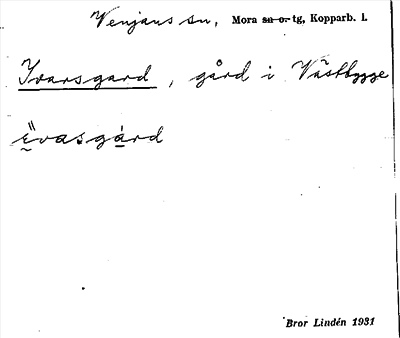 Venjans sn, Mora sn o. tg, Kopparb. l.
Ivarsgard, gård i Västbygge
ä̈vasgård
Bror Lindén 1931